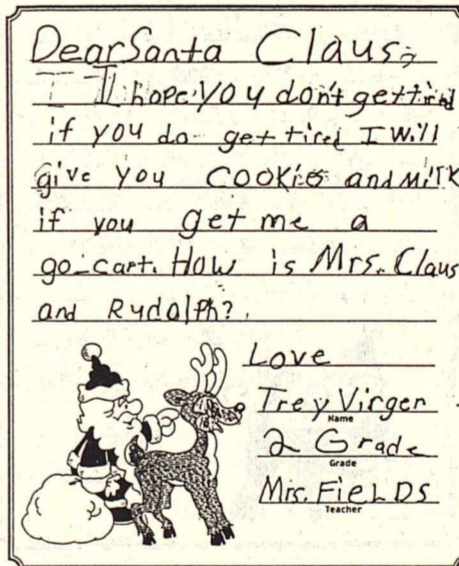 Dear Santa Claus,
I hope you don't get tired
if you do get tired I will
give you cookies and milk
if you get me a
go-cart. How is Mrs. Claus
and Rudolph?
Love
Trey Virgen
Name
2 Grade
Grade
Mrs. FieLDS
Teacher